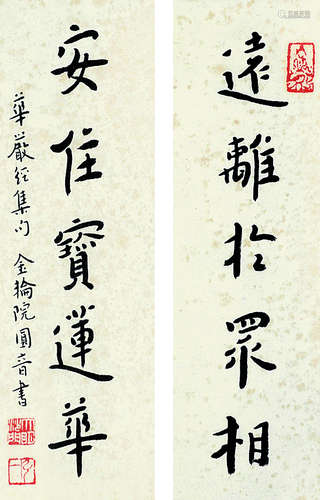 遠離於眾相
安住寶蓮華
華嚴經集句 金輪院圓音書